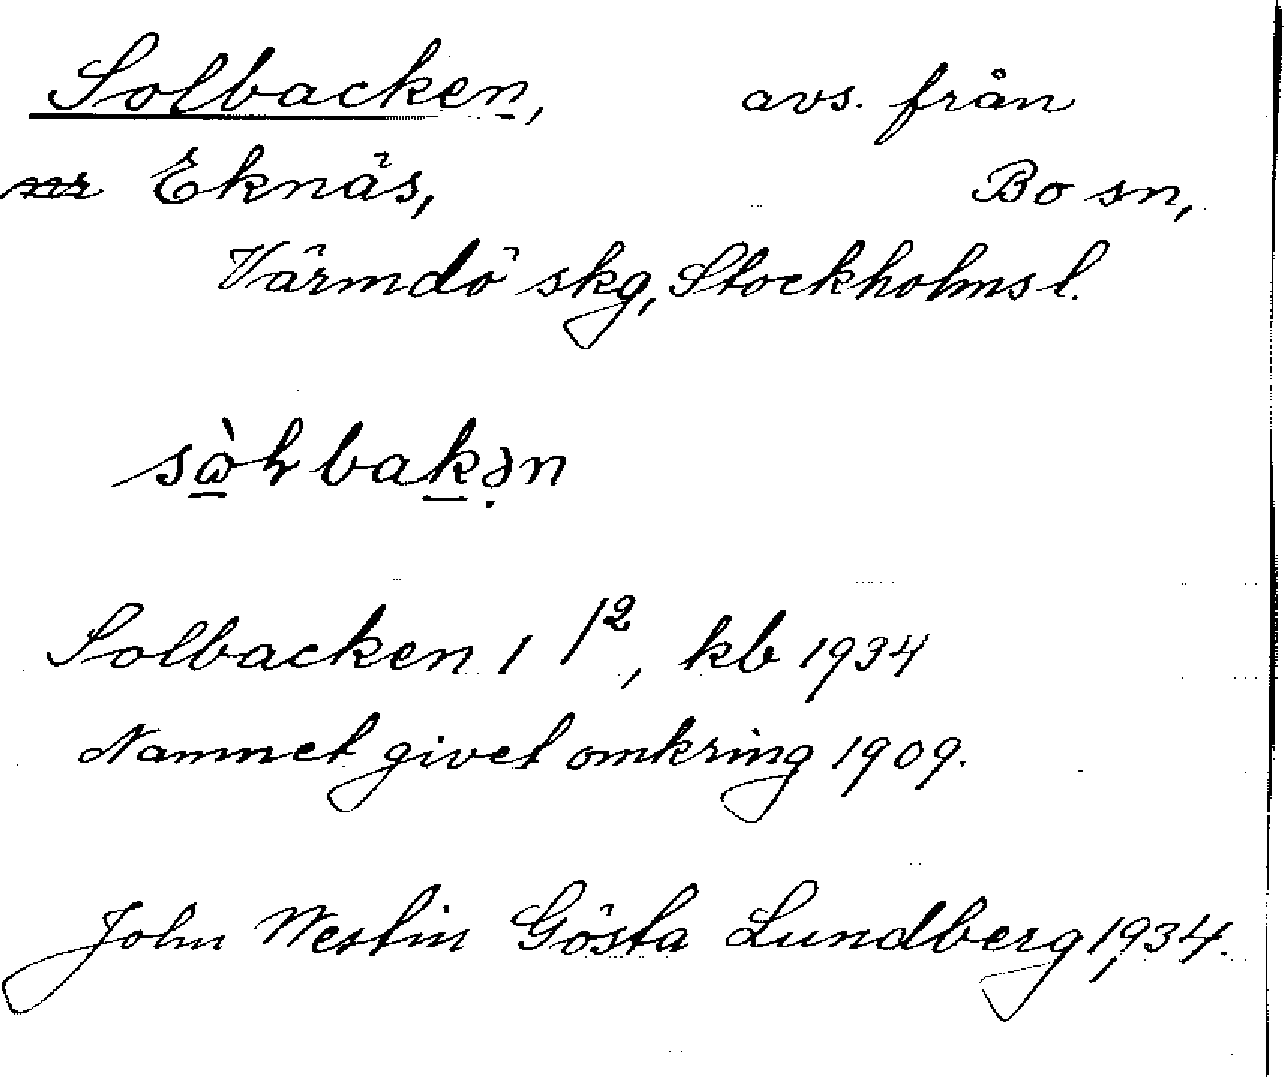 Solbacken, avs. från
nr Eknäs, Bo sn,
Värmdö skg, Stockholms l.
Solbacken 1 /2, kb 1934
Namnet givet omkring 1909.
John Westin Gösta Lundberg 1934.